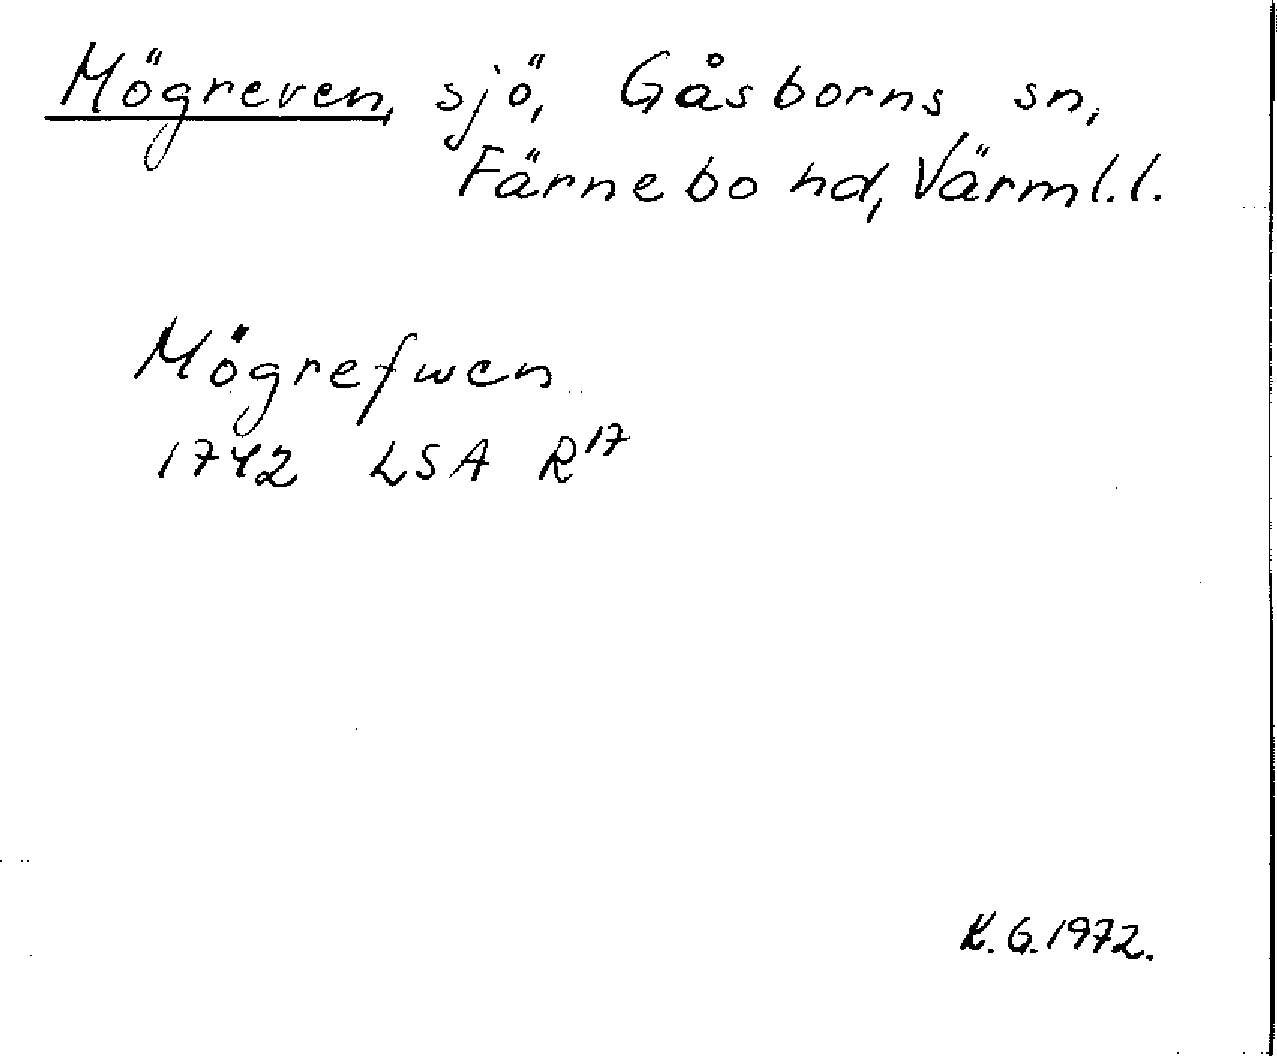 Mögreven, sjö, Gåsborns sn,
Färnebo hd, Värml.l.
Mögrefwen
1742 LSA R17
K.G.1972.